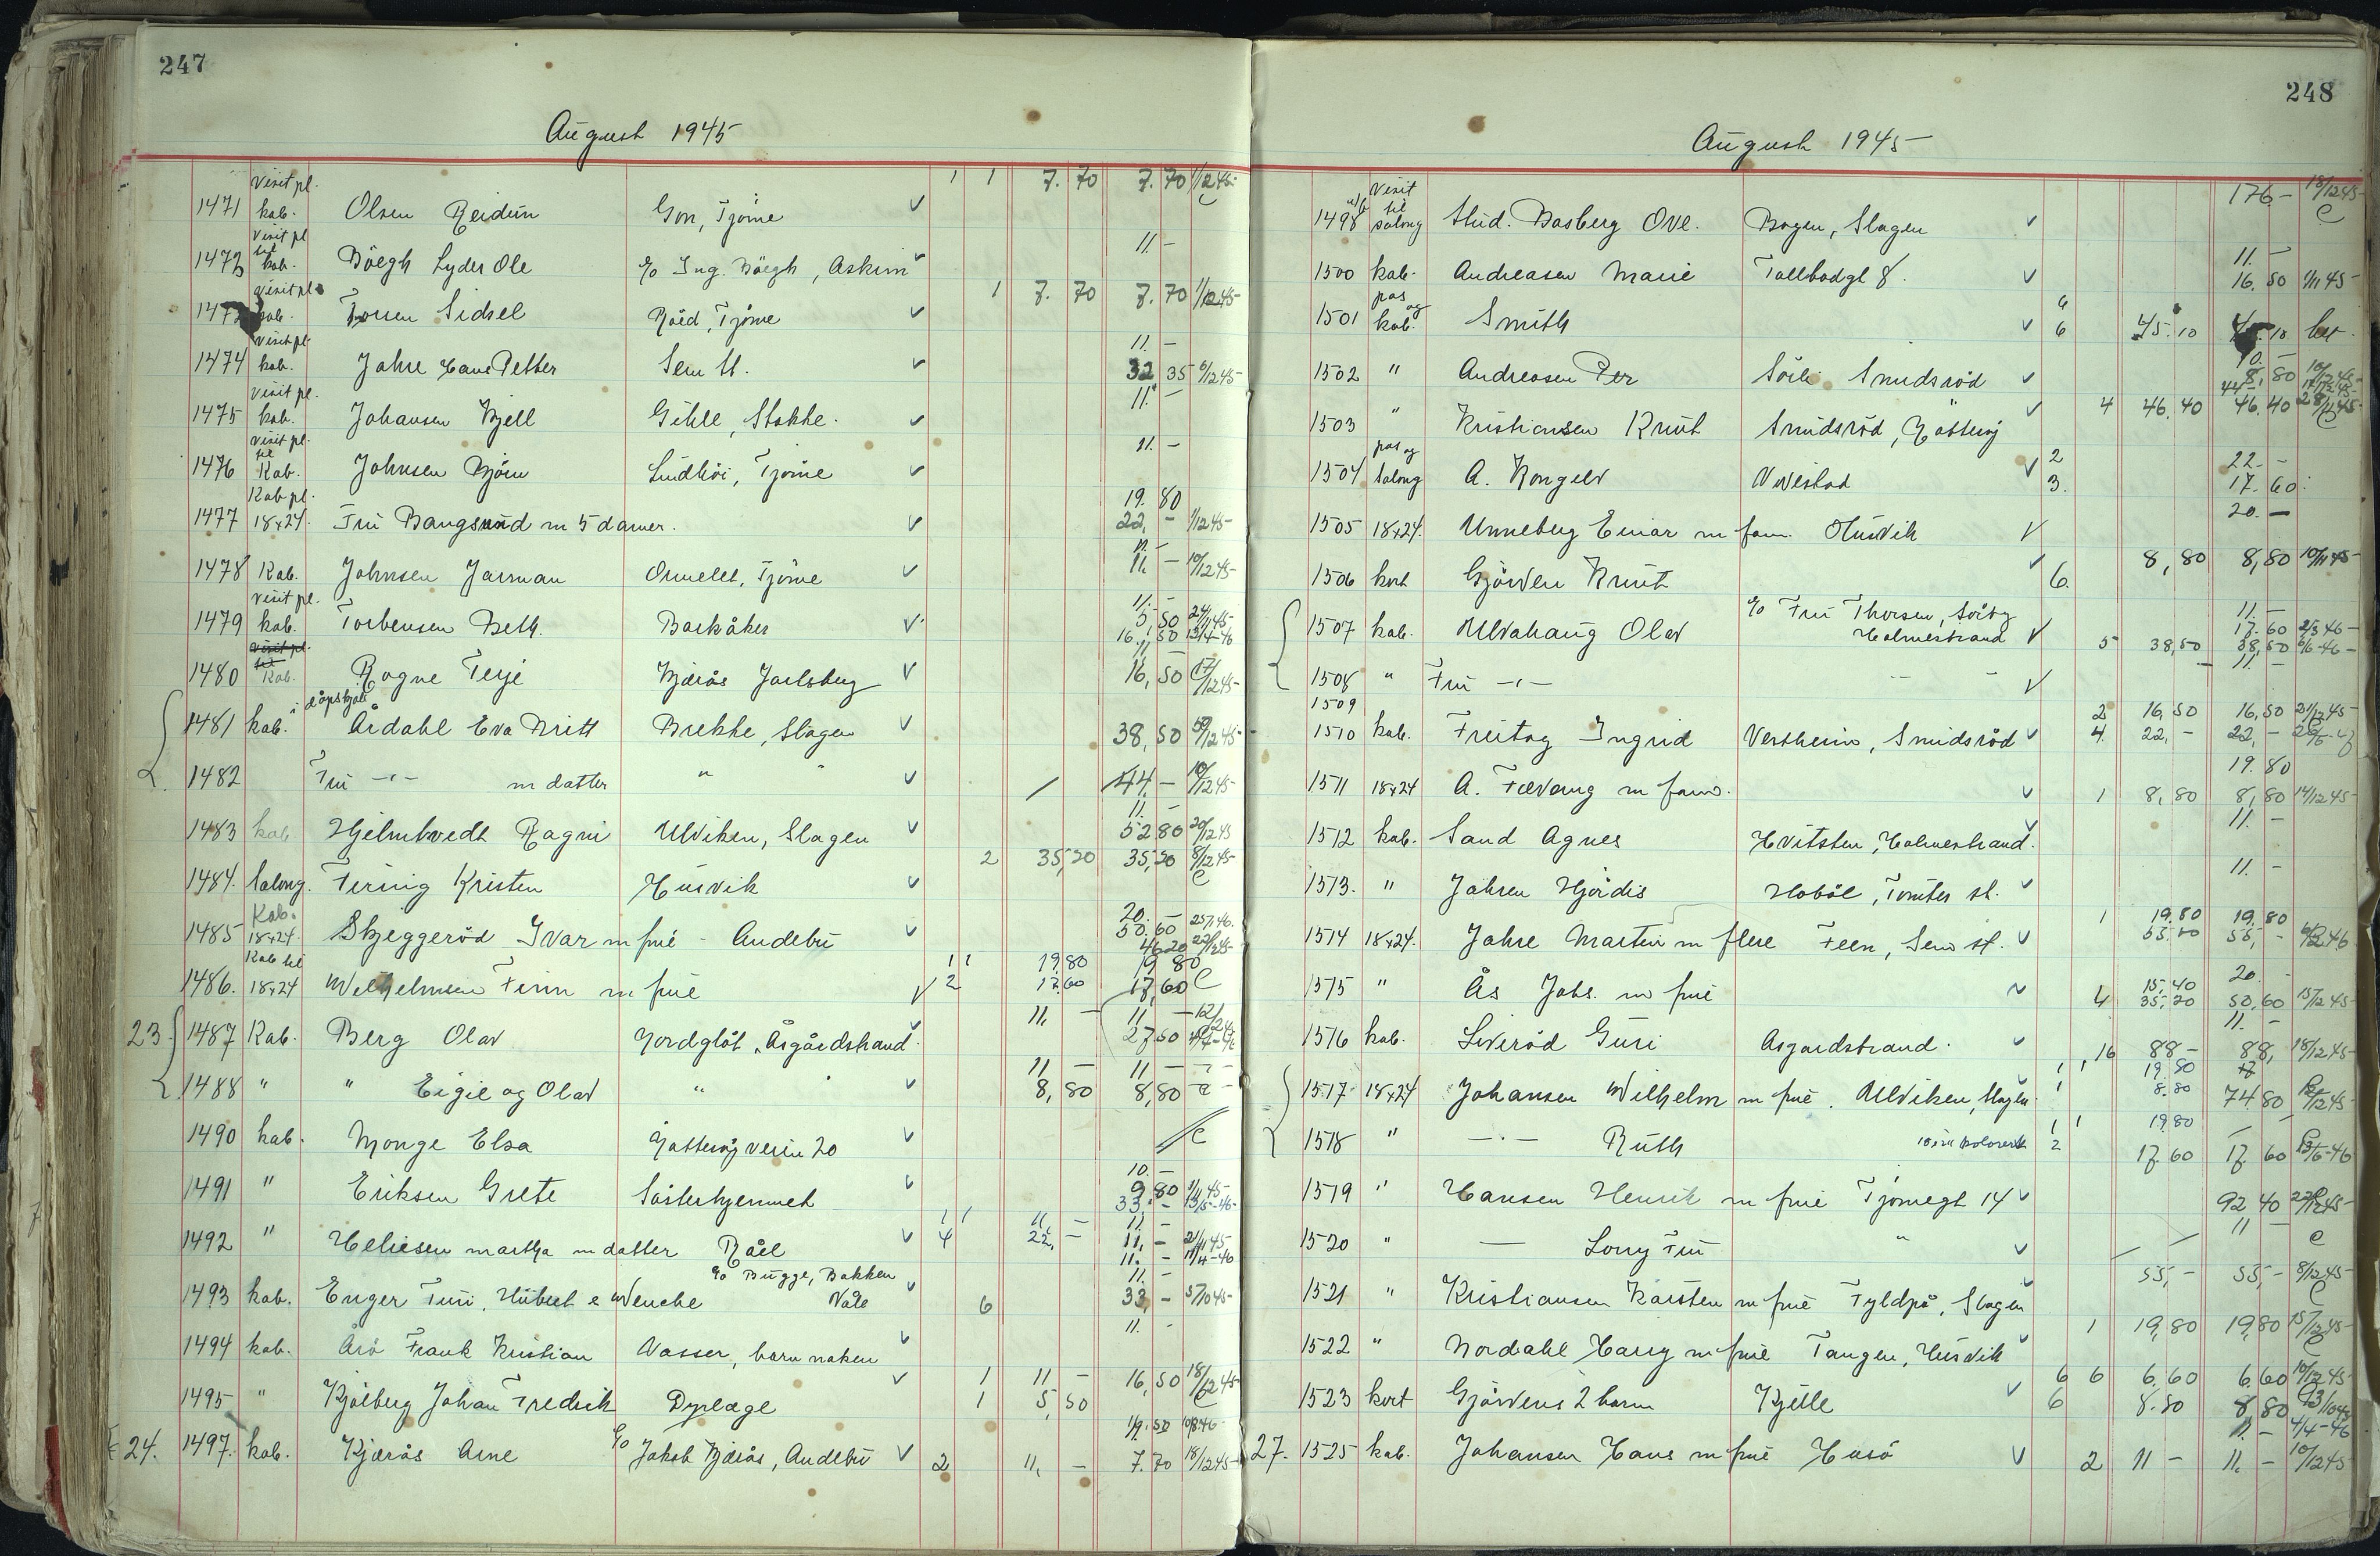 247
August 1945
Visit pl. 1 1 7. 70 7. 70 1/12 45
1471 kab. Olsen Reidun Gon, Tjøme ✓ C
Visit pl til 11 –
1472 kab. Bøegh Lyder Ole c/o Ing. Bøegh, Askim ✓
Visit pl. 1 7. 70 7. 70 1/12 45
kab. Sidsel Tjøme ✓
Visit pl. 11. –
1474 kab. Jahre Hans Petter Sem St. ✓ 32 35 6/12 45
Visit pl. 11. –
1475 kab. Johansen Kjell Gihle, Stokke. ✓
Visit pl. til 11. –
1476 Kab. Johnsen Bjørn Lindhøi, Tjøme ✓
Kab pl. 19. 80
1477 18x24. Fru Bangsund m 5 damer. ✓ 22, – 1/12 45
11. –
1478 Kab. Johnsen Jarman Ormelet, Tjøme ✓ 11, – 10/12 45
Visit pl. 11. –
1479 kab. Torbensen Beth. Barkåker ✓ 5, 50 24/11 45
16, 50
11 –
1480 Kab. Ragne Terje Kjærås Jarlsberg ✓ 16, 50 17/12 45
i dåpskjole
1481 kab. Årdahl Eva Britt Brekke, Slagen ✓ 38, 50 12 45
1482 Fru –"– m datter " " ✓ 44. – 10/12 45
11. –
1483 kab Hjelmtvedt Ragni Ulviken, Slagen ✓ 52 80 20/12 45
2 35, 20 35, 20 8/12 45
1484. Salong. Firing Kristen Husvik ✓ C
Kab. 20. –
1485 18x24. Skjeggerød Ivar m frue – Andebu ✓ 50. 60
46 20 22/12 45
Kab til 1 1 19.80 19 80
1486. 18x24 Wilhelmsen Finn m frue ✓ 2 17.60 17,60 C
11, – 11 –
23. 1487 Kab. Berg Olav Nordgløt, Åsgårdstrand. ✓ 27,50
11 – 11 –
1488 " " Eigil og Olav " ✓ 8, 80 8, 80
1490 kab. Monge Elsa 20 ✓ C
10. –
1491 " Eriksen Grete Søsterhjemmet ✓ 9 80 1/11 45
33, – 13/5-46
1 1 11, – 11. –
1492 " Helиesen Martha m datter Råel ✓ 4 22, – 11, – 21/11 45
11. – 11/4-46
c/o Bugge, Bakken 11. –
1493 kab. Enger Turi, Wenche Våle ✓ 6 33, – 5/10 45
11. –
1494 kab. Årø Frank Kristian Nasser, barn naken ✓
1 11 – 16, 50 18/12 45
1495 " Kjølberg Johan Fredrik ✓ 1 5, 50 C
c/o
24. 1497. kab. Kjærås Arne Jakob Kjærås, Andebu ✓ 2 11, – 7. 70 18/12 45
248
August 1945
Visit til 176 – 18/12 45
1498 salong Stud. Basberg Ove. Bogen, Slagen ✓ C
11. –
1500 kab. Andreasen Marie Tollbodgt 8. ✓ 16. 50 1/11 45
pas og 6
1501 kab. Smith ✓ 6 45. 10 bet
10. –
1502 " Andreasen Per Smidsrød ✓ 8, 80
4 46. 40 46. 40 28/11 45
1503 " Kristiansen Knut Smidsrød, ✓ C
pas og 2 22. –
1504 Salong A. Kongelv Nevlstad ✓ 3. 17. 60.
20. –
1505 18x24. Unneberg Einar m fam. Husvik ✓
8, 80 8, 80 10/11 45
1506 kort Gjørven Knut ✓ 6.
c/o Fru Thorsen, 11. –
1507 kab. Ulvahaug Olav Holmestrand ✓ 17. 60 2/3 46 –
5 38,50 38, 50 6/6-46 –
11. –
1508 " Fru –"– ✓
1509 2 16, 50 16, 50 21/12 45
1510 kab. Freitag Ingrid Vertheim, Smidsrød ✓ 4. 22, – 22, –
19. 80
1511 18x24 A. Fævang m fam. ✓ 1 8, 80 8, 80 14/12 45
11. –
1512 kab. Sand Agnes Hvitsten, Holmestrand. ✓
11. –
1513. " Jahren Hjørdis Hobøl, Tomter st. ✓
1 19.80 19. 80
1514 18x24. Jahre Martin m flere Feen, Sem st. ✓ 55, –
15, 40 20. –
1515 " Ås Johs. m frue 4 35, 20 50, 60 15/12 45
11. –
1516 kab. Liverød Guri Åsgårdstrand. ✓ 16 88 – 88, – 18/12 45
1 1 19. 80
1517 18x24 Johansen Wilhelm m frue. Ulviken, Slagen ✓ 1 8.80 74 80
1 1 19.80
1518 " –"– Ruth 2 17. 60 17. 60
1519 " Hansen Henrik m frue Tjømegt 14 ✓ 92 40
11 –
1520 " — Lorry Fru " ✓ C
55, – 55, – 8/12 45
1521 " Kristiansen Karsten m frue Fyldpå, Slagen ✓ C
1 19, 80 19, 80 15/12 45
1522 " Nordahl Harry m frue Tangen, Husvik ✓ C
6 6 6. 60 6. 60 10/12 45
1523 kort Gjørvens 2 barn Kjelle ✓ 6 8. 80 8, 80
11. – 4/4-46
27. 1525 kab. Johansen Hans m frue Husø ✓ 2 11 – 11, – 10/12 45